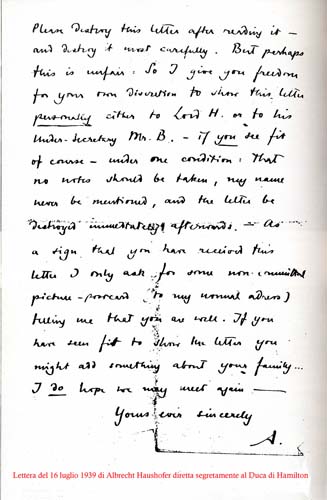 Please destroy this letter after reading it –
and destroy it most carefully. But perhaps
this is unfair: So I give you freedom
for your own discretion to show this letter
personally either to Lord H. or to his
Under-Secretary Mr. B. – if you see fit
of course – under one condition: That
no notes should be taken, my name
never be mentioned, and the letter be
destroyed immediately afterwards. – As
a sign that you have received this
letter I only ask for some non-committal
picture-postcard (to my normal adress)
telling me that you are well. If you
have seen fit to show the letter you
might add something about your family...
I do hope we may meet again –
Yours ever sincerely
A.
Lettera del 16 luglio 1939 di Albrecht Haushofer diretta segretamente al Duca di Hamilton